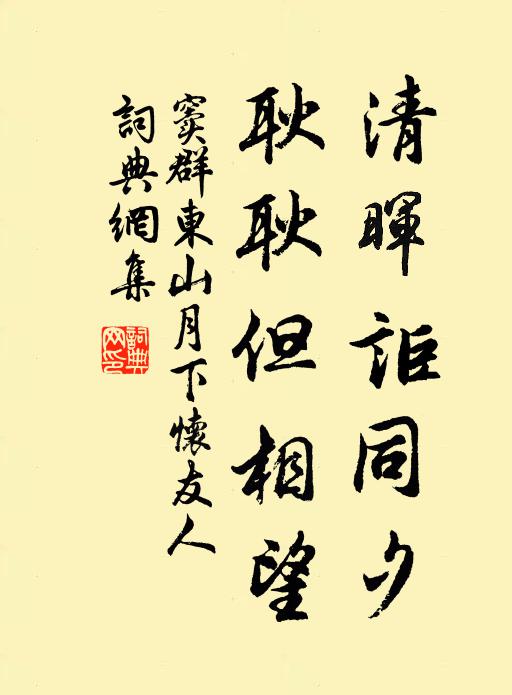 清暉詎同夕
耿耿但相望
竇群東山月下懷友人
詞典網集
詞典網印